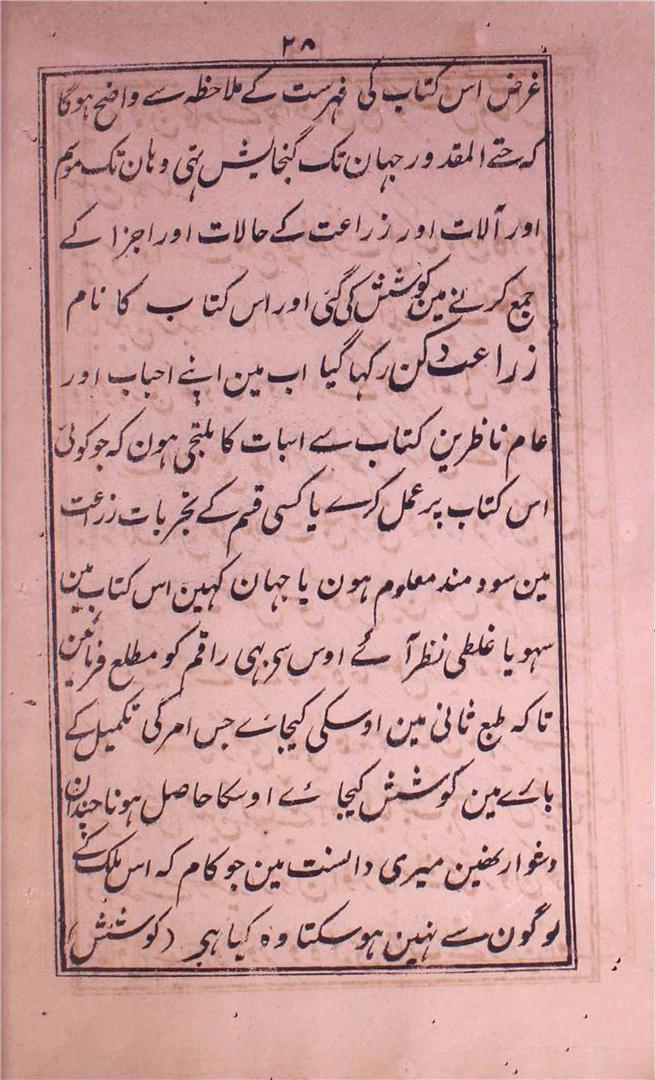 ۲۸
غرض اس کتاب کی فہرست کے ملاحظہ سے واضح ہوگا
کہ حتے المقدور جہان تک گنجایش ہتی وہان تک موسم
اور آلات اور زراعت کے حالات اور اجزا کے
جمع کرنے مین کوشش کی گئی اور اس کتاب کا نام
زراعت دکن رکہا گیا اب مین اپنے احباب اور
عام ناظرین کتاب سے اسبات کا ملتجی ہون کہ جو کوئی
اس کتاب پر عمل کرے یا کسی قسم کے تجربات زراعت
مین سودمند معلوم ہون یا جہان کہین اس کتاب مین
سہو یا غلطی نظر آئے اوس سے بہی راقم کو مطلع فرمائین
تاکہ طبع ثانی مین اوسکی کیجاے جس امر کی تکمیل کے
بارے مین کوشش کیجائے اوسکا حاصل ہونا چندان
دغوار نہین میری دانست مین جو کام کہ اس ملک کے
لوگون سے نہین ہوسکتا وہ کیا ہے (کوشش)